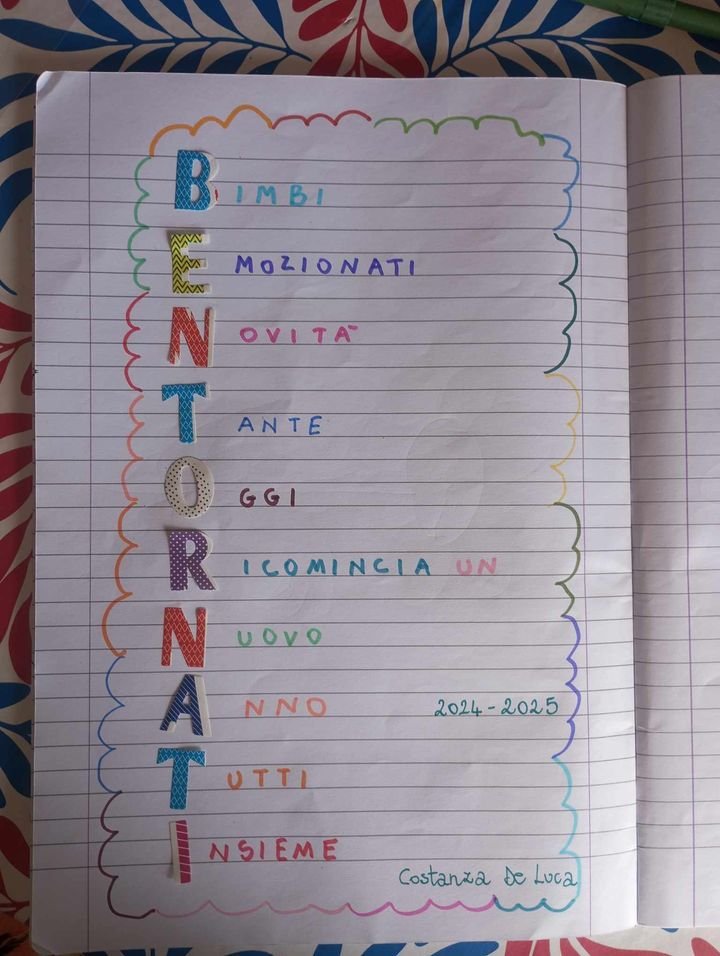 BIMBI
EMOZIONATI
NOVITÀ
TANTE
OGGI
RICOMINCIA UN
NUOVO
ANNO 2024-2025
TUTTI
INSIEME
Costanza De Luca